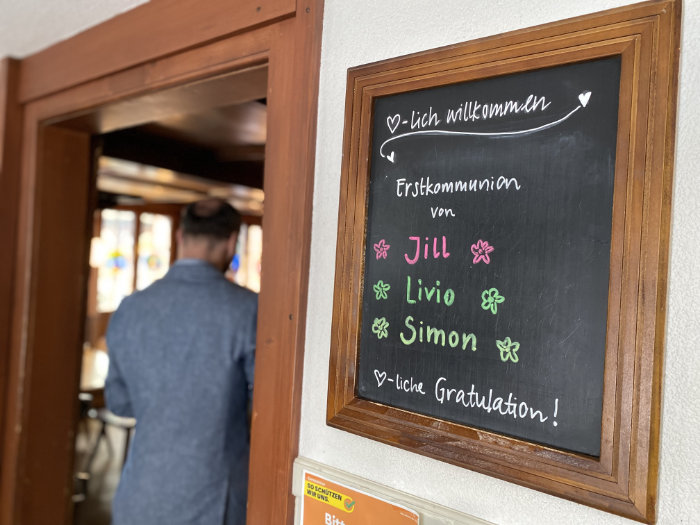 ♡-lich willkommen
Erstkommunion
von
Jill
Livio
Simon
♡-liche Gratulation!
SO SCHÜTZEN
WIR UNS.
Bitte